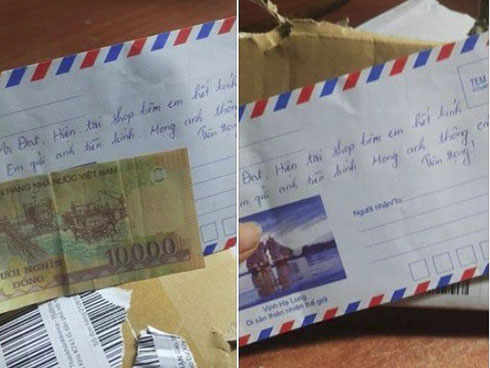 Đạt, Hiện tại shop bêm em hết kính
Em gửi anh tiền kính. Mong anh thông
Trân trọng,
HÀNG NHÀ NƯỚC VIỆT NAM
10.000
NGHÌN
ĐỒNG
TEM
Đạt, Hiện tại shop bêm em hết kính
Em gửi anh tiền kính. Mong anh thông
Trân trọng,
Người nhận/To:
Vịnh Hạ Long
Di sản thiên nhiên thế giới